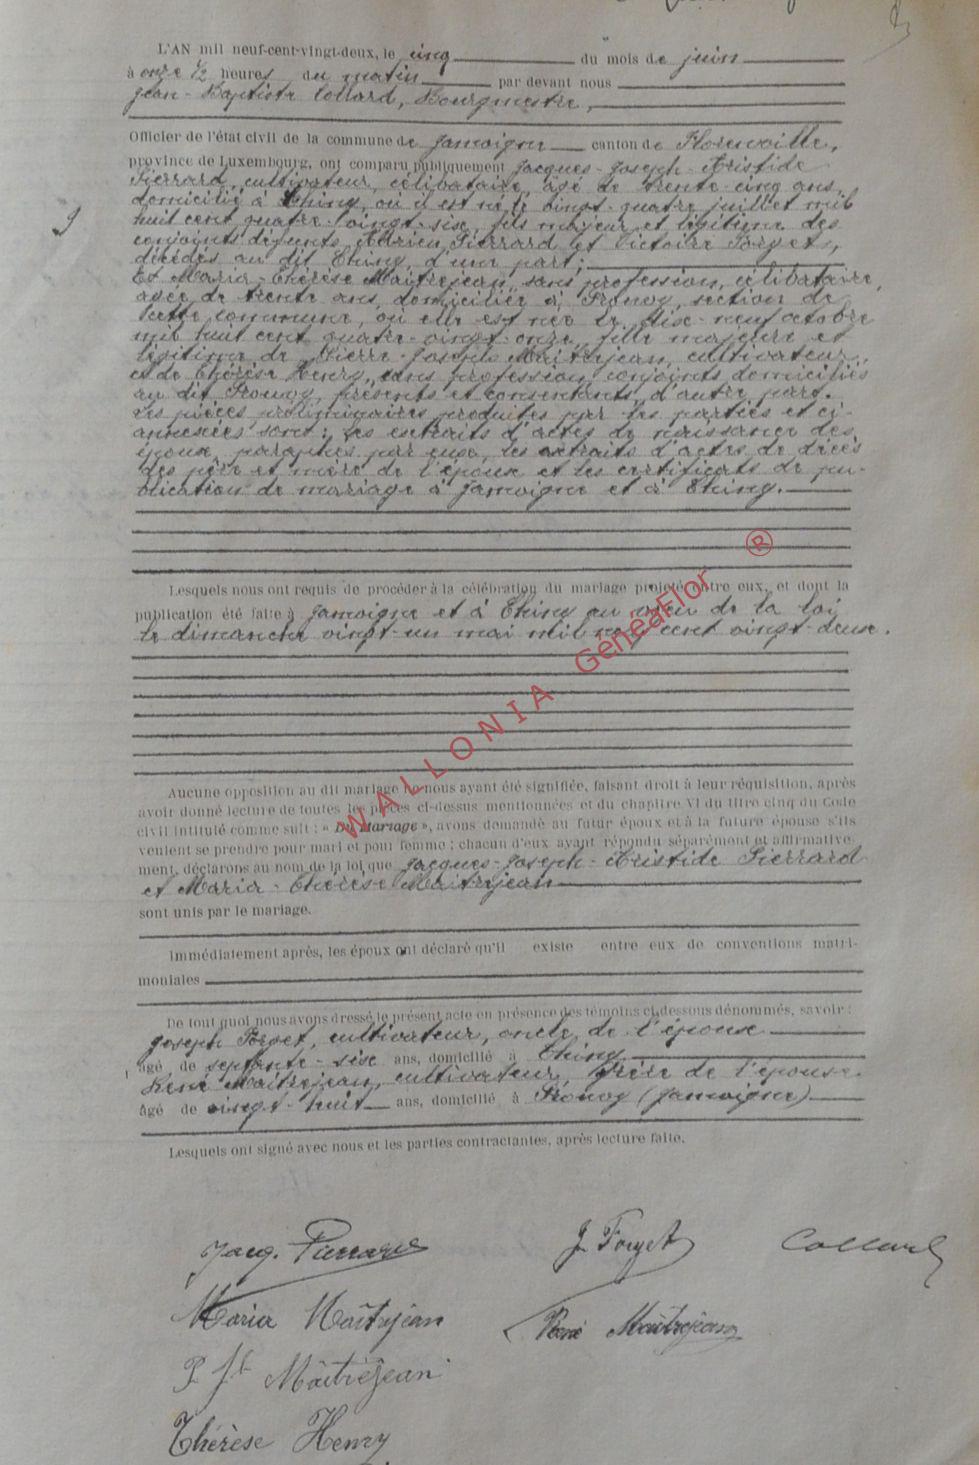 9
L'AN mil neuf-cent-vingt-deux, le cinq du mois de juin
à onze 1/2 heures du matin par devant nous
Jean-Baptiste Collard, Bourgmestre,
Officier de l'état civil de la commune de Jamoigne canton de Florenville,
province de Luxembourg, ont comparu publiquement Jacques-Joseph-Aristide
Pierrard, cultivateur, célibataire, âgé de trente-cinq ans,
domicilié à Thiny, où il est né le vingt-quatre juillet mil
huit cent quatre-vingt-six, fils majeur et légitime des
conjoints défunts Adrien Pierrard et Victoire Forget,
décédés au dit Thiny, d'une part;
Et Maria-Thérèse Maîtrejean, sans profession, célibataire,
âgée de trente ans, domiciliée à Prouvy, section de
cette commune, où elle est née le dix-neuf octobre
mil huit cent quatre-vingt-onze, fille majeure et
légitime de Pierre-Joseph Maîtrejean, cultivateur,
et de Thérèse Henry, sans profession, conjoints domiciliés
au dit Prouvy, présents et consentants, d'autre part.
Les pièces préliminaires produites par les parties et ci-
annexées sont: les extraits d'actes de naissance des
époux, paraphés par eux, les extraits d'actes de décès
des père et mère de l'époux et les certificats de pu-
blication de mariage à Jamoigne et à Thiny.
Lesquels nous ont requis de procéder à la célébration du mariage projeté entre eux, et dont la
publication été faite à Jamoigne et à Thiny au vœu de la loi
le dimanche vingt-un mai mil neuf cent vingt-deux.
WALLONIA GénéaFlor ®
Aucune opposition au dit mariage ne nous ayant été signifiée, faisant droit à leur réquisition, après
avoir donné lecture de toutes les pièces ci-dessus mentionnées et du chapitre VI du titre cinq du Code
civil intitulé comme suit : « Du Mariage », avons demandé au futur époux et à la future épouse s'ils
veulent se prendre pour mari et pour femme ; chacun d'eux ayant répondu séparément et affirmative-
ment, déclarons au nom de la loi que Jacques-Joseph-Aristide Pierrard
et Maria-Thérèse Maîtrejean
sont unis par le mariage.
Immédiatement après, les époux ont déclaré qu'il existe entre eux de conventions matri-
moniales
De tout quoi nous avons dressé le présent acte en présence des témoins ci-dessous dénommés, savoir :
Joseph Forget, cultivateur, oncle de l'époux
âgé de septante-six ans, domicilié à Thiny
René Maîtrejean, cultivateur, frère de l'épouse
âgé de vingt-huit ans, domicilié à Prouvy (Jamoigne)
Lesquels ont signé avec nous et les parties contractantes, après lecture faite.
Jacq. Pierrard J. Forget Collard
Maria Maîtrejean René Maîtrejean
P. Jh Maîtrejean
Thérèse Henry